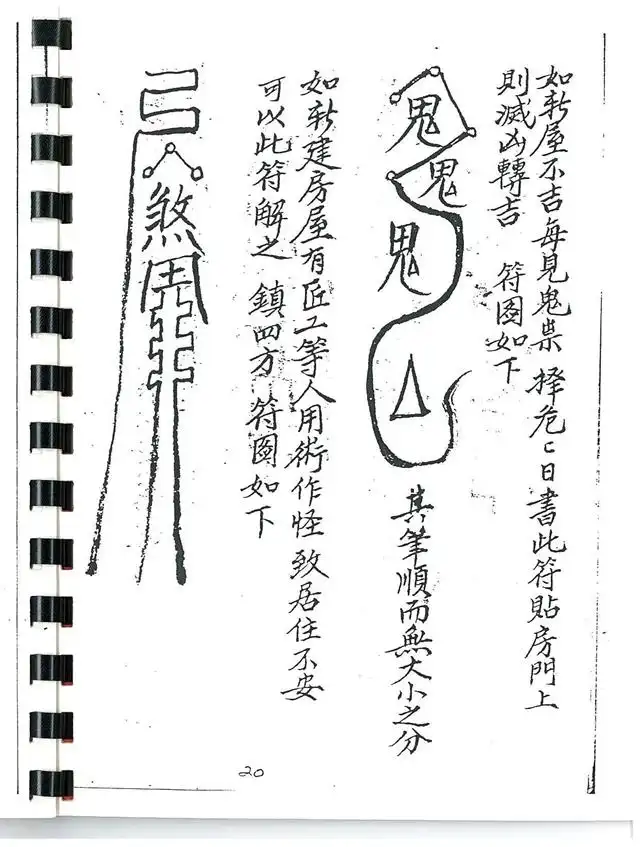 如新屋不吉每見鬼祟 择危日書此符貼房門上
則滅凶轉吉 符圖如下
鬼
鬼
鬼
其筆順而無大小之分
如新建房屋有匠工等人用術作怪致居住不安
可以此符解之 鎮四方 符圖如下
煞
20